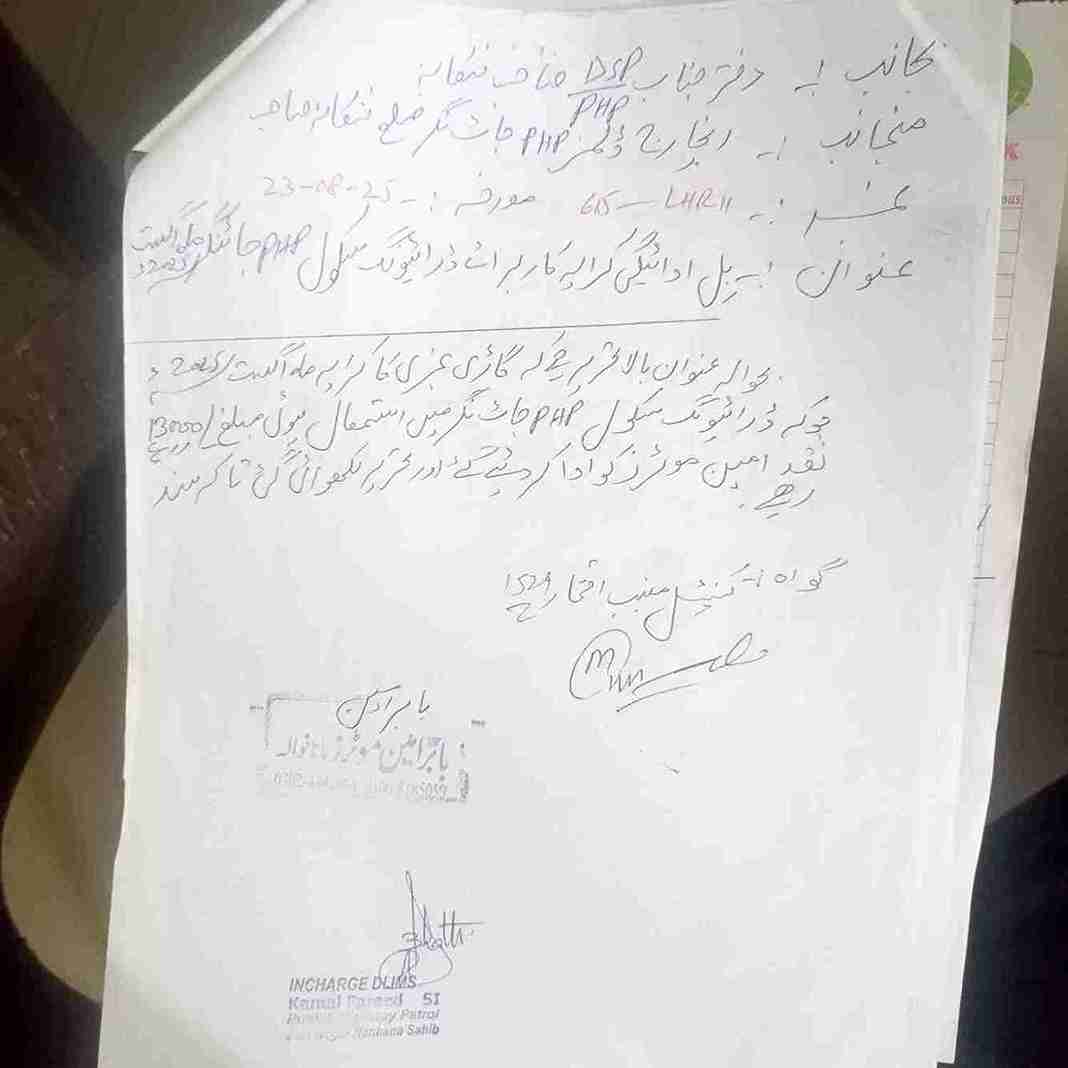 بجانب :۔ دفتر جناب DSP PHP صاحب ننکانہ
منجانب :۔ انچارج ڈلمز PHP جاٹ نگر ضلع ننکانہ صاحب
نمبر :۔ 615-LHRH مورخہ :۔ 23-08-25
عنوان :۔ بل ادائیگی کرایہ کار برائے ڈرائیونگ سکول PHP ماہ اگست 2025ء
بحوالہ عنوان بالا تحریر ہے کہ گاڑی نمبری کا کرایہ ماہ اگست 2025ء
جو کہ ڈرائیونگ سکول PHP جاٹ نگر میں استعمال ہوئی مبلغ /13000 روپے
نقد امین موٹرز کو ادا کر دیئے گئے اور تحریر لکھوائی گئی تا کہ سند
رہے۔
گواہ :۔ کنسٹیبل 1529
بابر امین
بابر امین موٹرز مانانوالہ
Bhatti
INCHARGE DLIMS
Kamal Fareed SI
Punjab Highway Patrol
Nankana Sahib